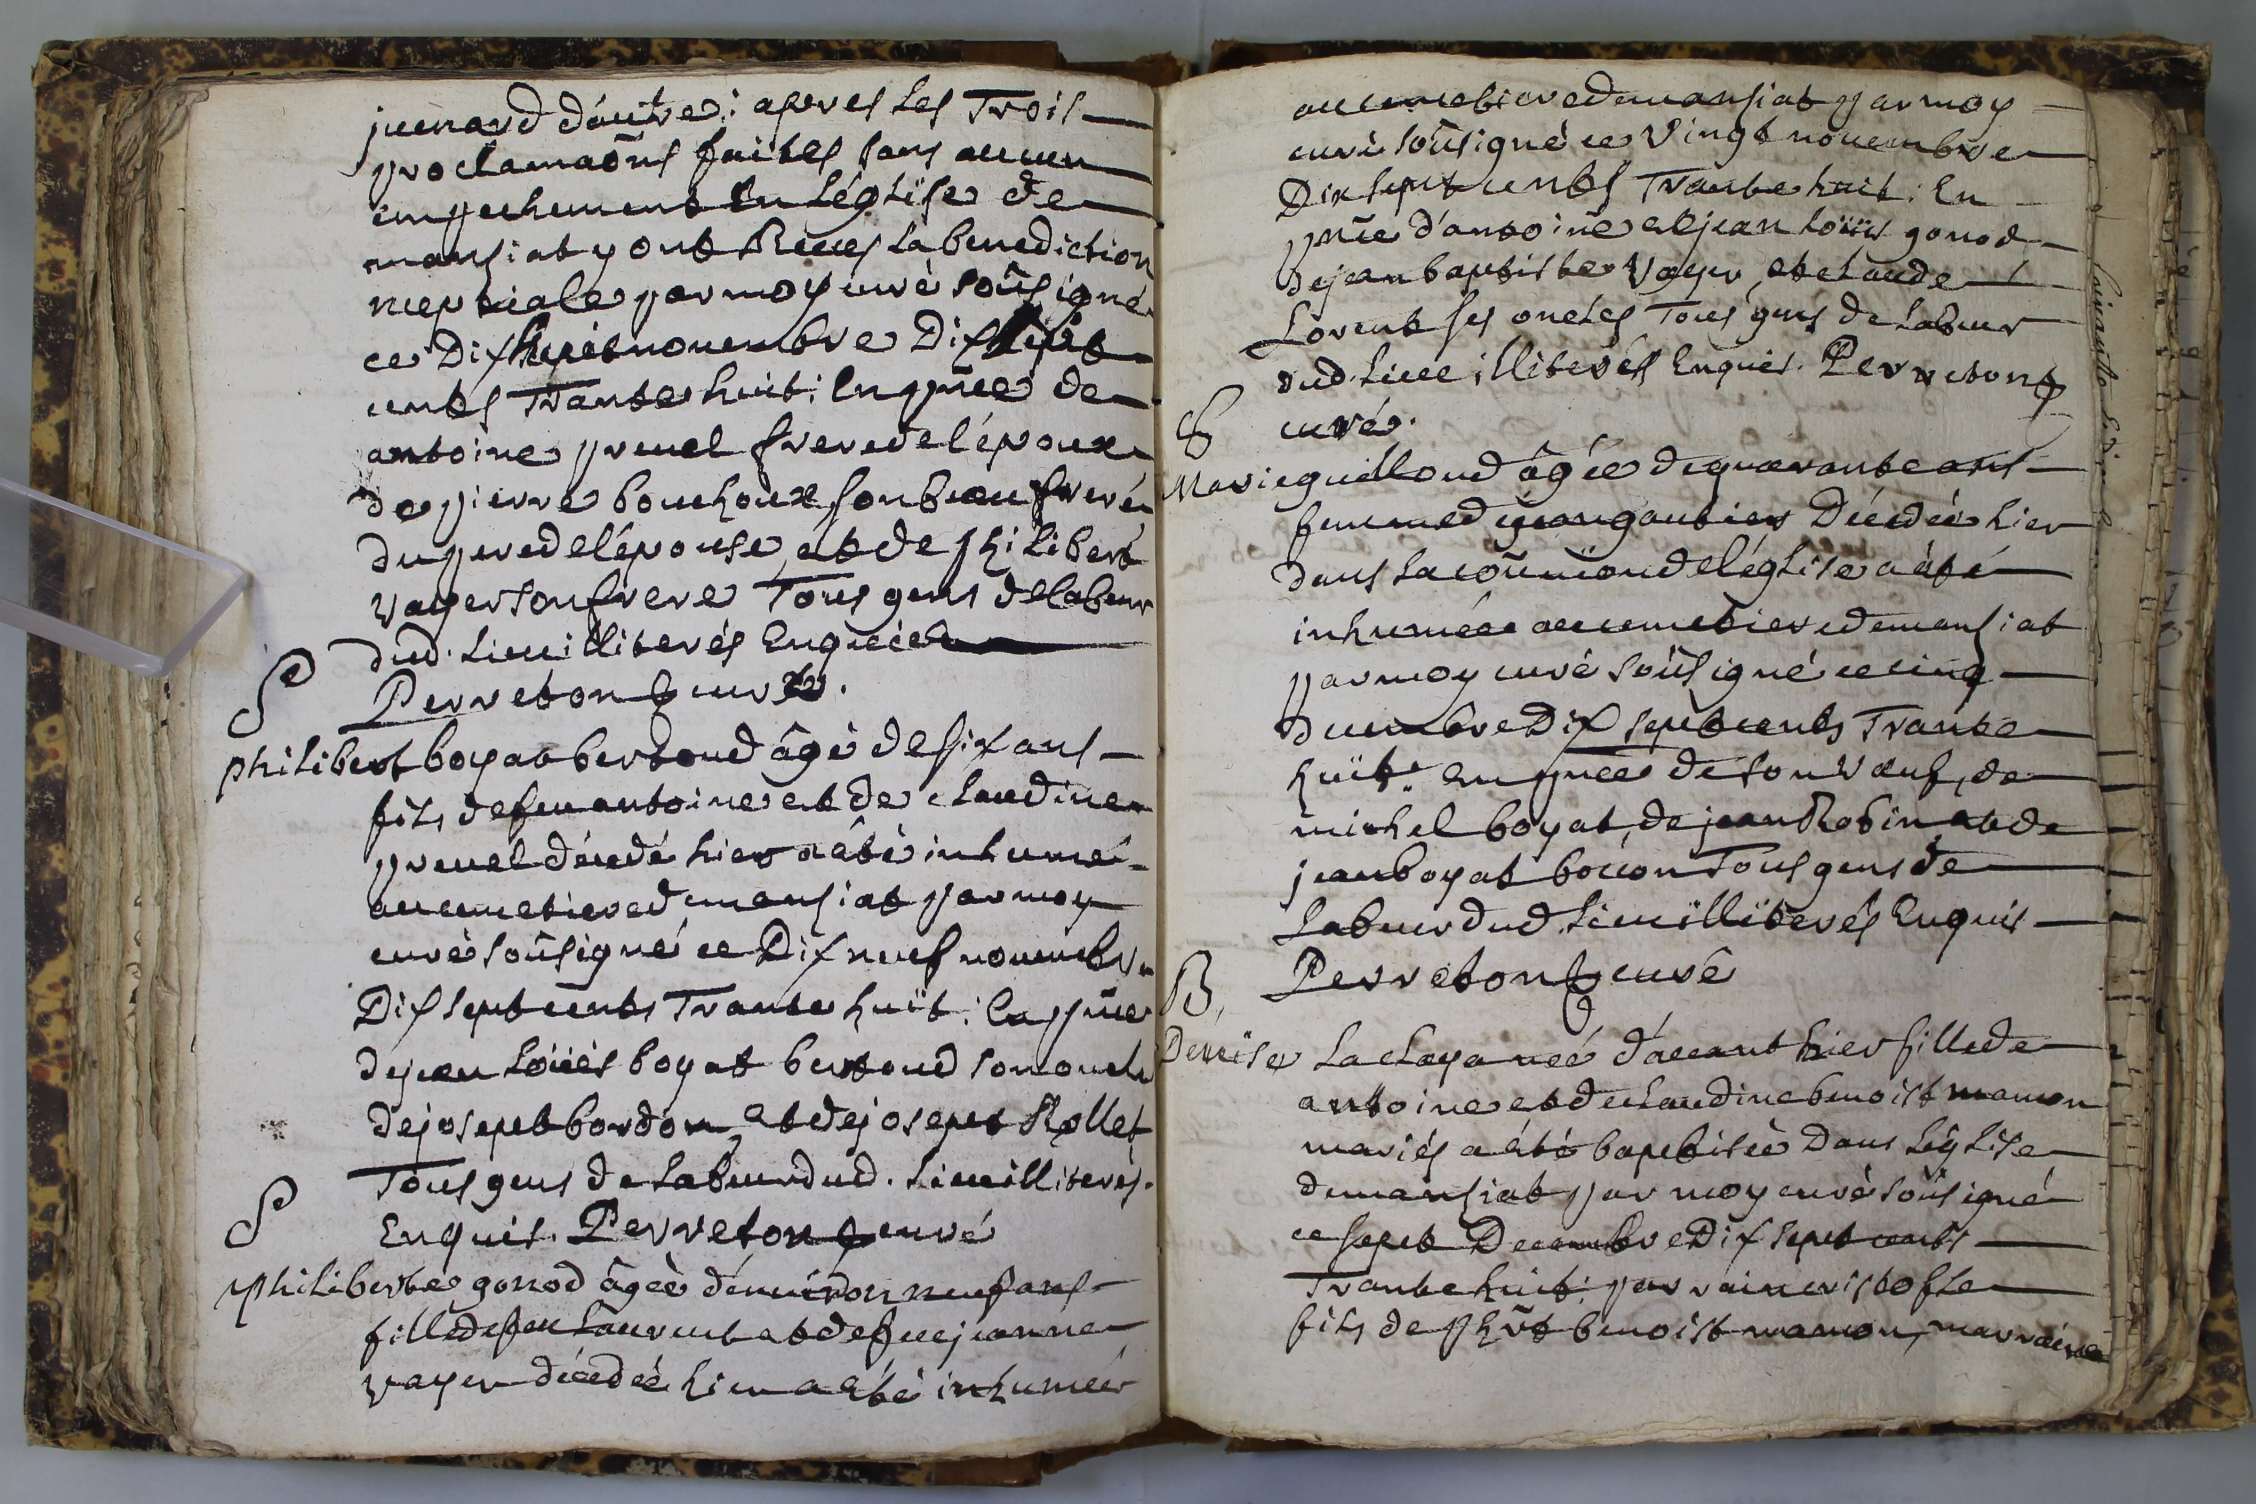 juenard d'autre: apres les Trois
proclamaõns faites sans aucun
empechement En L'égLise de
mansiat y ont Receus La benediction
nuptiale par moy curé soûsigné
ce Dix sept novembre Dix sept
cents Trante huit: En pñce de
antoine prevel frere de l'époux
de pierre bouchoux son beau frere
du pere de l'épouse, et de philibert
vayer son frere Tous gens de labeur
dud. Lieu illiterés Enquis
Perreton curé.
S
philibert boyat bertoud âgé de six ans
fils de feu antoine et de claudine
prevel décédé hier a été inhumé
au cimetiere de mansiat par moy
curé soûsigné ce Dix neuf novembre
Dix sept cents Trante huit: En pñce
de jean Loüis boyat bertoud son oncle
de josept bordon, et de josept Rollet
Tous gens de labeur dud. Lieu illiterés.
Enquis. Perreton curé
S
philiberte gonod âgée d'environ neuf ans
fille de feu Laurent et de feue jeanne
vayer décédée hier a été inhumée
au cimetiere de mansiat par moy
curé soûsigné ce Vingt novembre
Dix sept cents Trante huit: En
pñce d'antoine et jean Loüis gonod
de jean baptiste Vayer, et claude
Lorent ses oncles Tous gens de Labeur
dud. Lieu illiterés Enquis. Perreton
curé.
S
Marie guilloud âgée de quarante ans
femme de jean gautier Décédée hier
dans La coñmuñion de l'égLise a été
inhumée au cimetiere de mansiat
par moy curé soûsigné ce cinq
decembre Dix sept cents Trante
huit: en pñce de son Veuf, de
michel boyat, de jean Robin, et de
jean boyat boccon Tous gens de
Labeur dud. Lieu illiterés Enquis
Perreton curé
B,
Denise La claya neé d'avant hier fille de
antoine et de claudine benoist mamon
mariés a été baptisée Dans L'égLise
de mansiat par moy curé soûsigné
ce sept Decembre Dix sept cents
Trante huit: parrain cristofle
fils de phĩrt benoist mamon, marraine